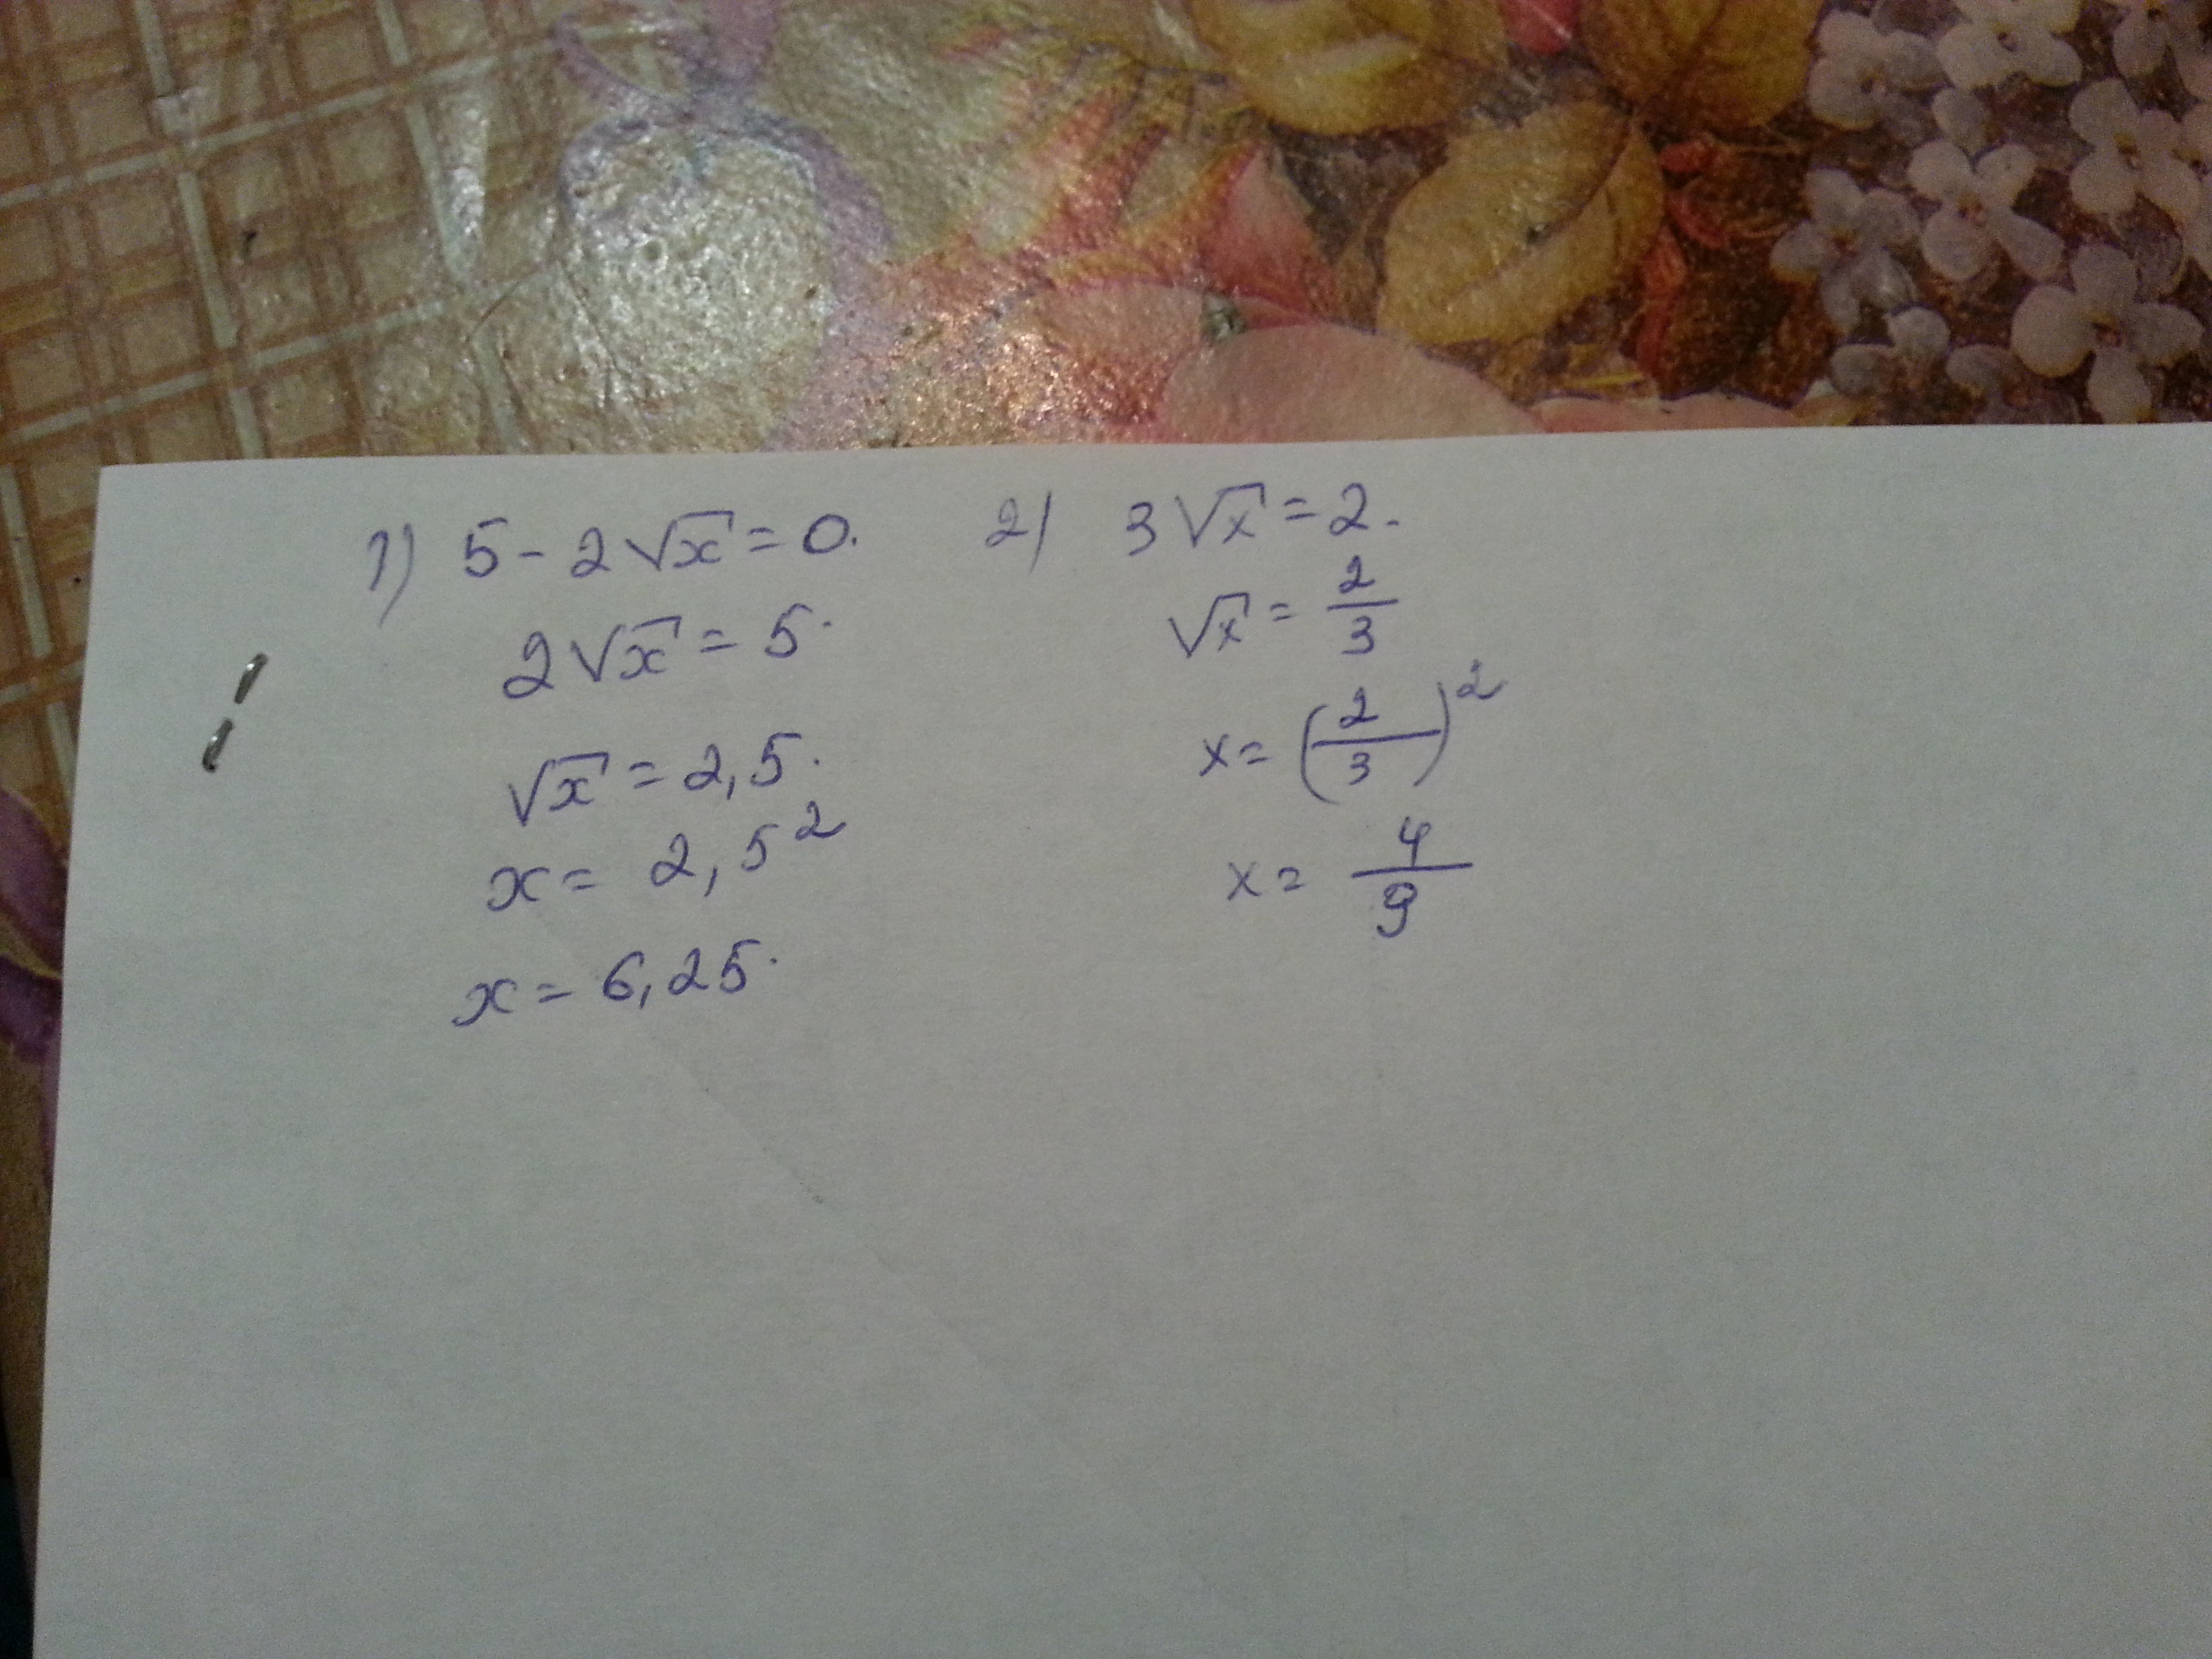 1) 5 - 2√x = 0.
2√x = 5.
√x = 2,5.
x = 2,5²
x = 6,25.
2) 3√x = 2.
√x = 2/3
x = (2/3)²
x = 4/9